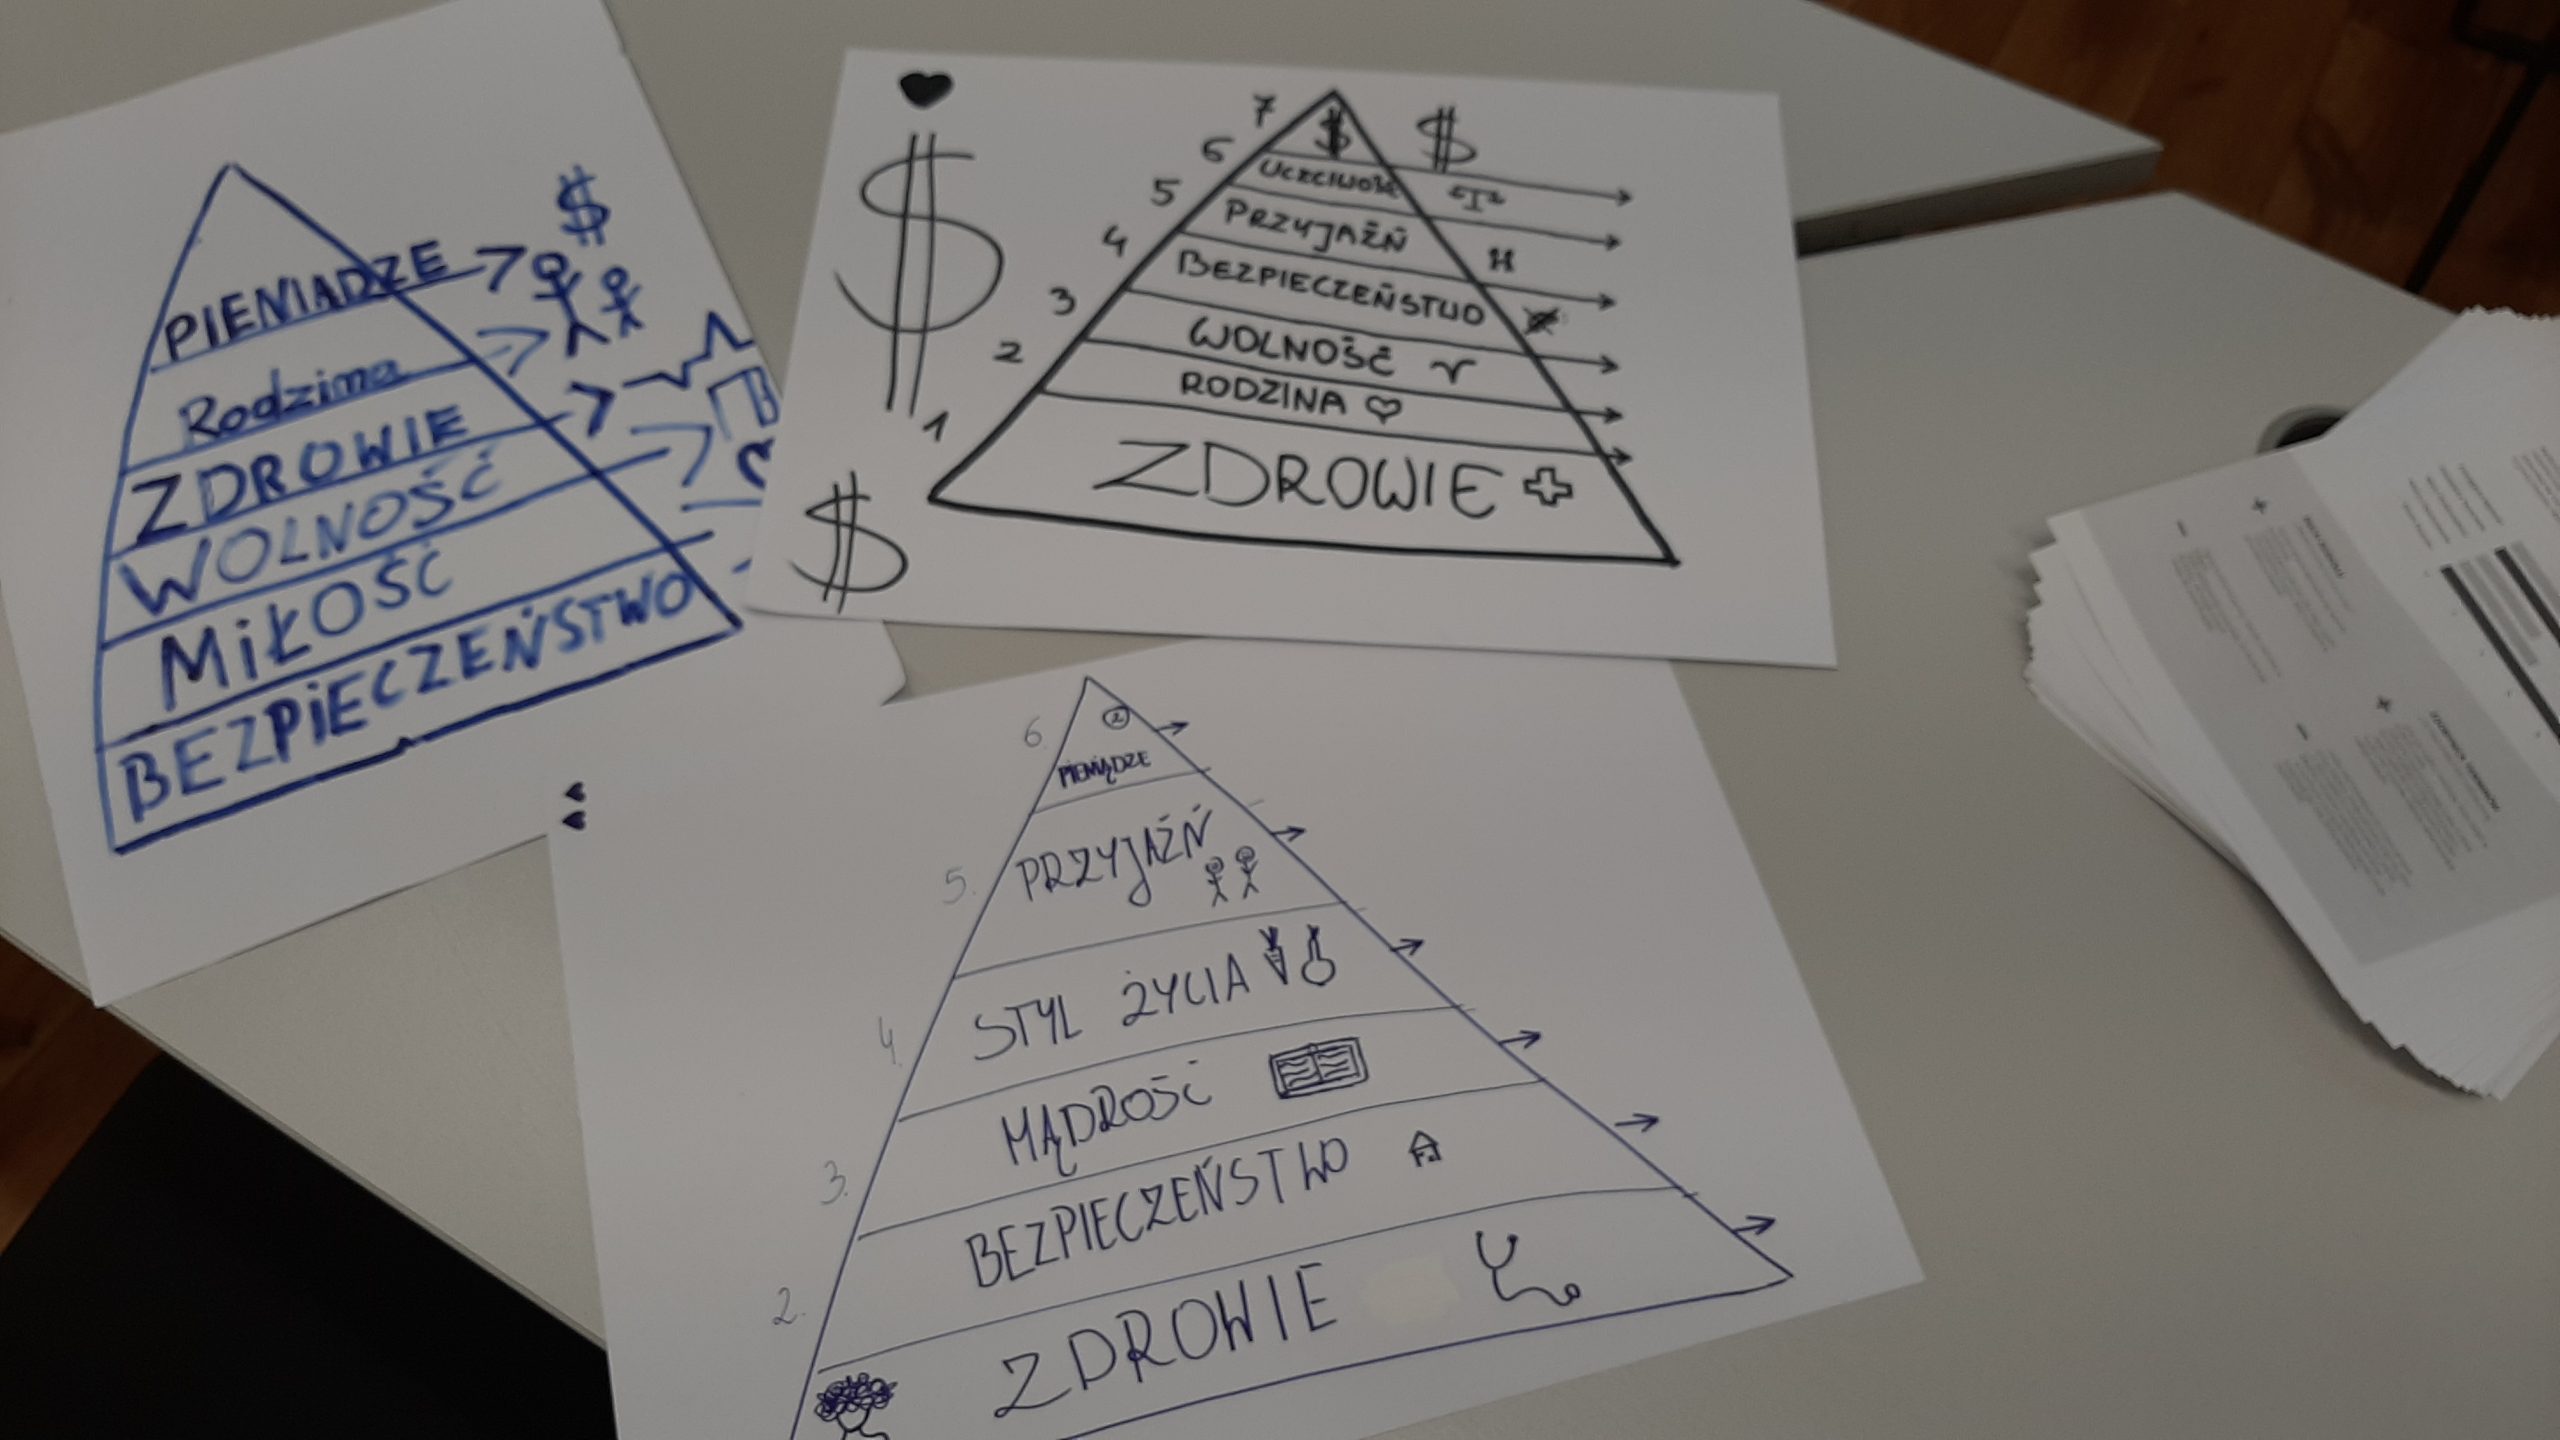 $
PIENIĄDZE
Rodzina
ZDROWIE
WOLNOŚĆ
MiŁOŚĆ
BEZPiECZEŃSTWO
$
$
7
$
$
6
UCZCIWOŚĆ
5
PRZYJAŹŃ
4
BEZPIECZEŃSTWO
3
WOLNOŚĆ
2
RODZINA
1
ZDROWIE
6
PIENIĄDZE
5.
PRZYJAŹŃ
4.
STYL ŻYCIA
MĄDROŚĆ
3.
BEZPIECZEŃSTWO
2.
ZDROWIE